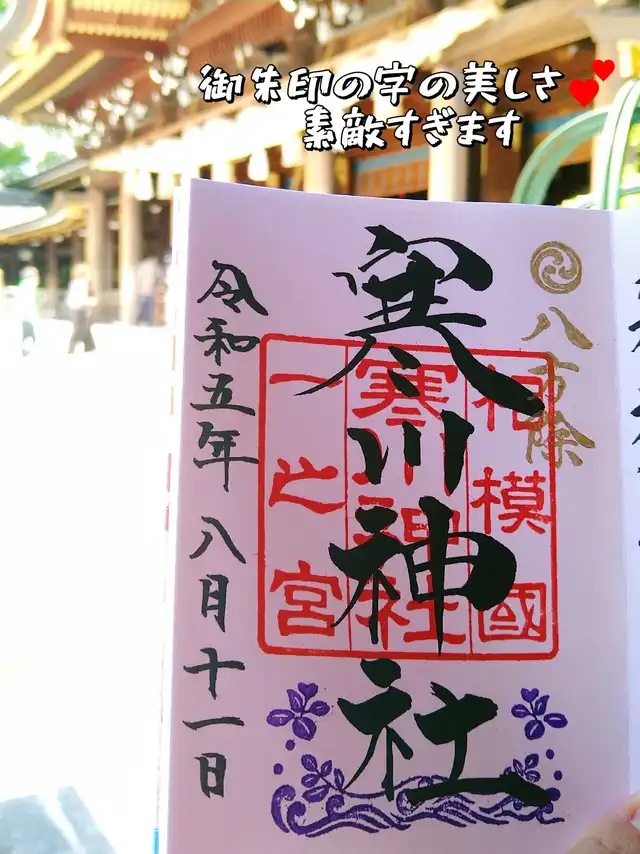 御朱印の字の美しさ
素敵すぎます
八方除
寒川神社
相模國
寒川神社
一之宮
令和五年 八月十一日